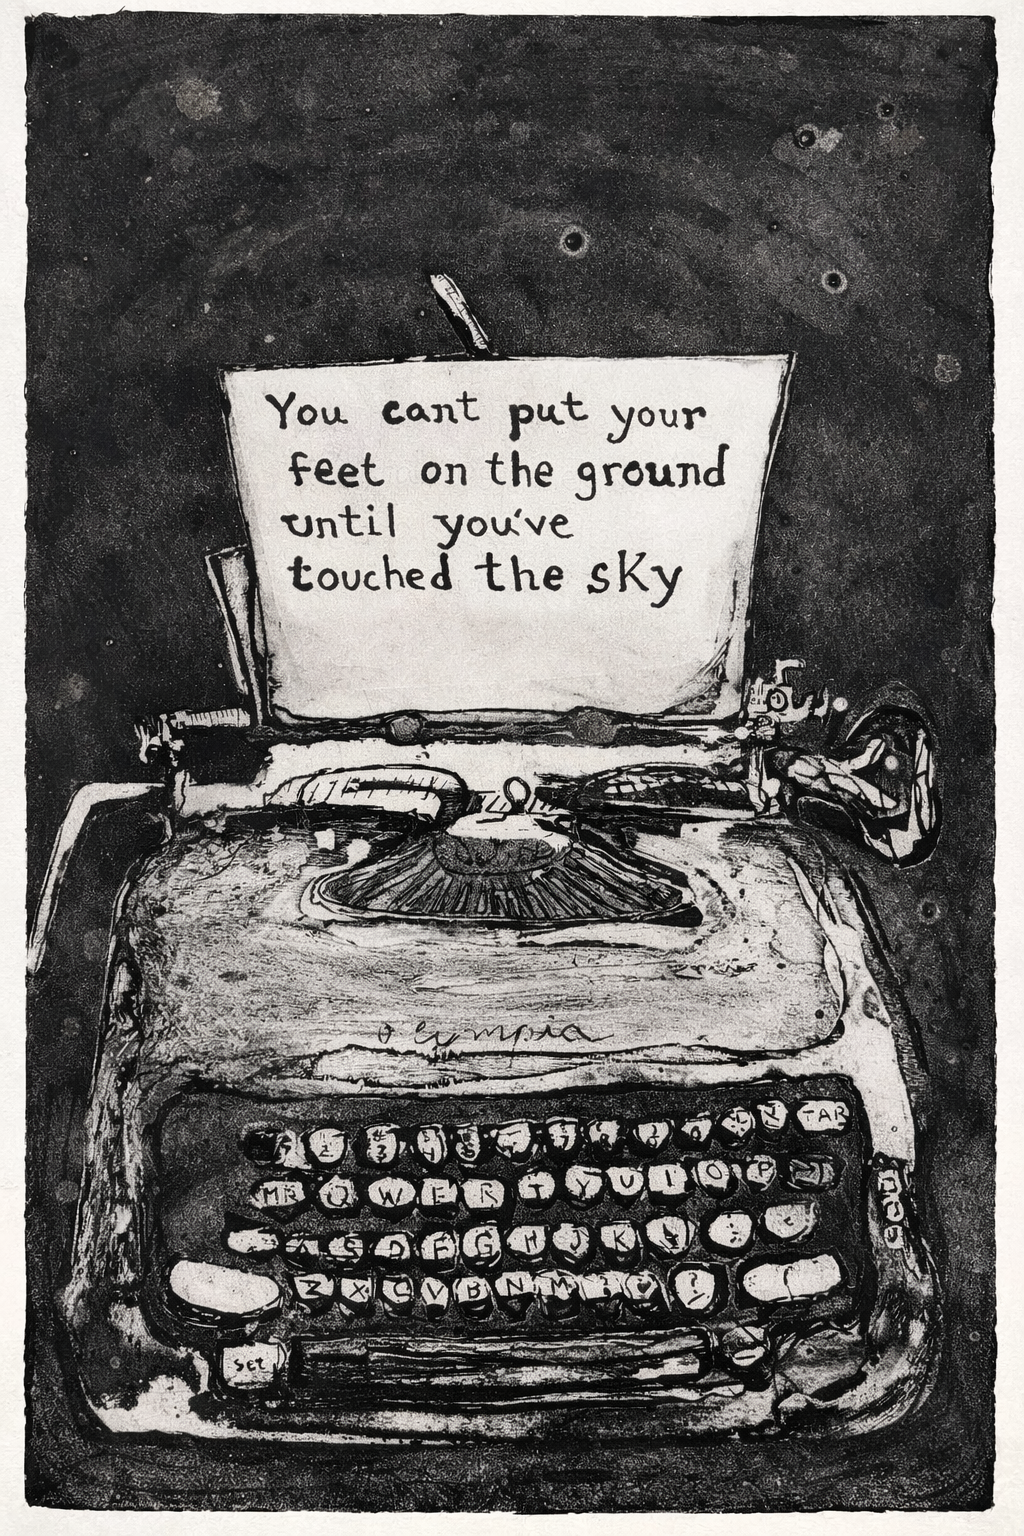 You cant put your
feet on the ground
until you've
touched the sky
olympia
TAB
MR Q W E R T Y U I O P
A S D F G H J K
Z X C V B N M
SET